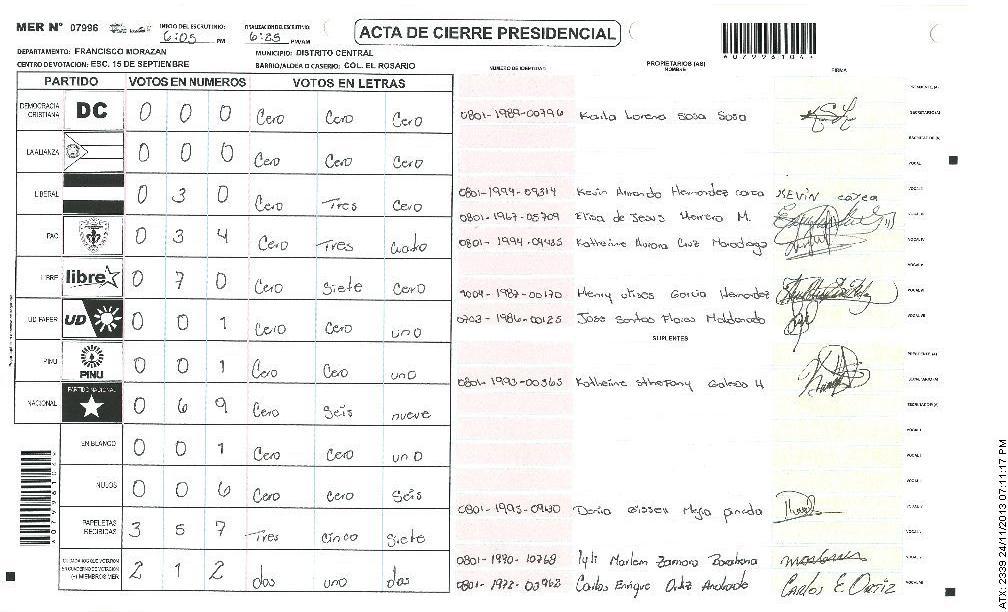 MER N° 07996 INICIO DEL ESCRUTINIO: 6:05 PM FINALIZACION DEL ESCRUTINIO: 6:25 PM/AM
ACTA DE CIERRE PRESIDENCIAL
A07996104
DEPARTAMENTO: FRANCISCO MORAZAN MUNICIPIO: DISTRITO CENTRAL
CENTRO DE VOTACION: ESC. 15 DE SEPTIENBRE BARRIO/ALDEA O CASERIO: COL. EL ROSARIO
NUMERO DE IDENTIDAD PROPIETARIOS (AS) NOMBRE FIRMA
PARTIDO VOTOS EN NUMEROS VOTOS EN LETRAS
DEMOCRACIA CRISTIANA DC 0 0 0 Cero Cero Cero
LA ALIANZA 0 0 0 Cero Cero Cero
LIBERAL 0 3 0 Cero Tres Cero
PAC 0 3 4 Cero Tres cuatro
LIBRE libre 0 7 0 Cero Siete Cero
UD FAPER UD 0 0 1 Cero Cero uno
PINU PINU 0 0 1 Cero Cero uno
NACIONAL PARTIDO NACIONAL 0 6 9 Cero Seis nueve
EN BLANCO 0 0 1 Cero Cero uno
NULOS 0 0 6 Cero cero Seis
PAPELETAS RECIBIDAS 3 5 7 Tres cinco Siete
(+) MIEMBROS MER 2 1 2 dos uno dos
0801-1989-00796 Karla Lorena Sosa Sosa
0801-1999-09314 Kevin Armando Hernandez KEVIN
0801-1967-05709 Elisa de Jesus Herrera M.
0801-1994-09435 Katherine Aurora Cruz
-1987-00170 Henry Garcia Hernandez
0703-1986-00125 Jose Santos Flores Maldonado
SUPLENTES
0801-1993-00363 Katherine
0801-1995- Gissell
0801-1990-10768 Marlem Zamora
0801-1972-03963 Carlos Enrique Ortiz Andrade CARLOS E. ORTIZ
A07996104
ATX-2339 24/11/2013 07:11:17 PM